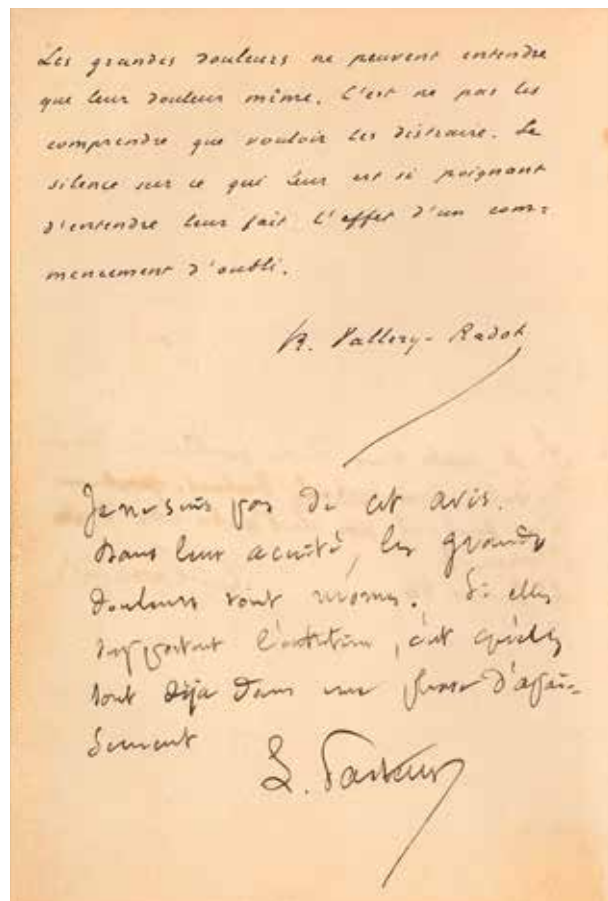 Les grandes douleurs ne peuvent entendre
que leur douleur même. C'est ne pas les
comprendre que vouloir les distraire. Le
silence sur ce qui leur est si poignant
d'entendre leur fait l'effet d'un com-
mencement d'oubli.
R. Vallery-Radot
Je ne suis pas de cet avis.
Dans leur acuité, les grandes
douleurs sont mornes. Si elles
supportent l'entretien, c'est qu'elles
sont déjà dans une phase d'apai-
sement
L. Pasteur